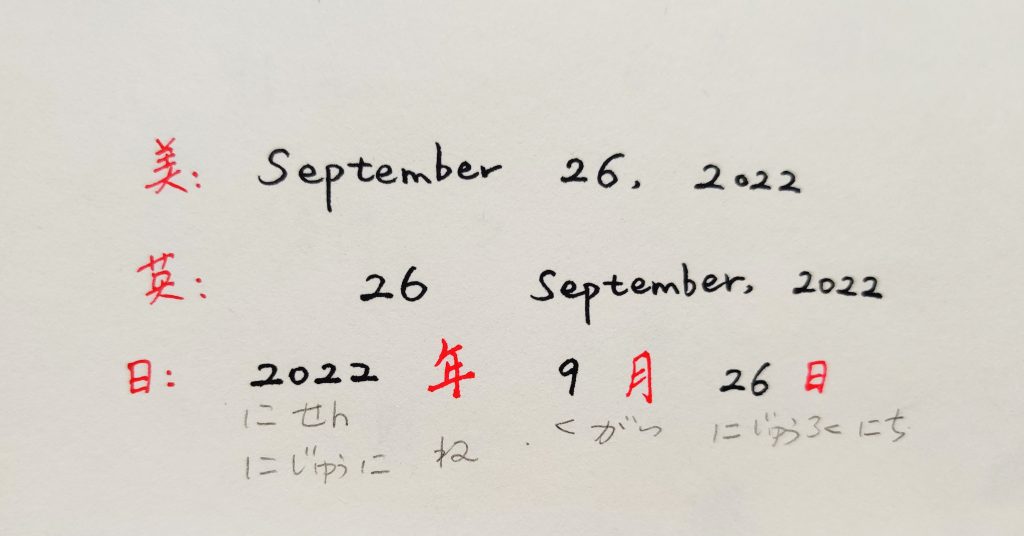 美: September 26, 2022
英: 26 September, 2022
日: 2022 年 9 月 26 日
にせん くがつ にじゅうろくにち
にじゅうに ね